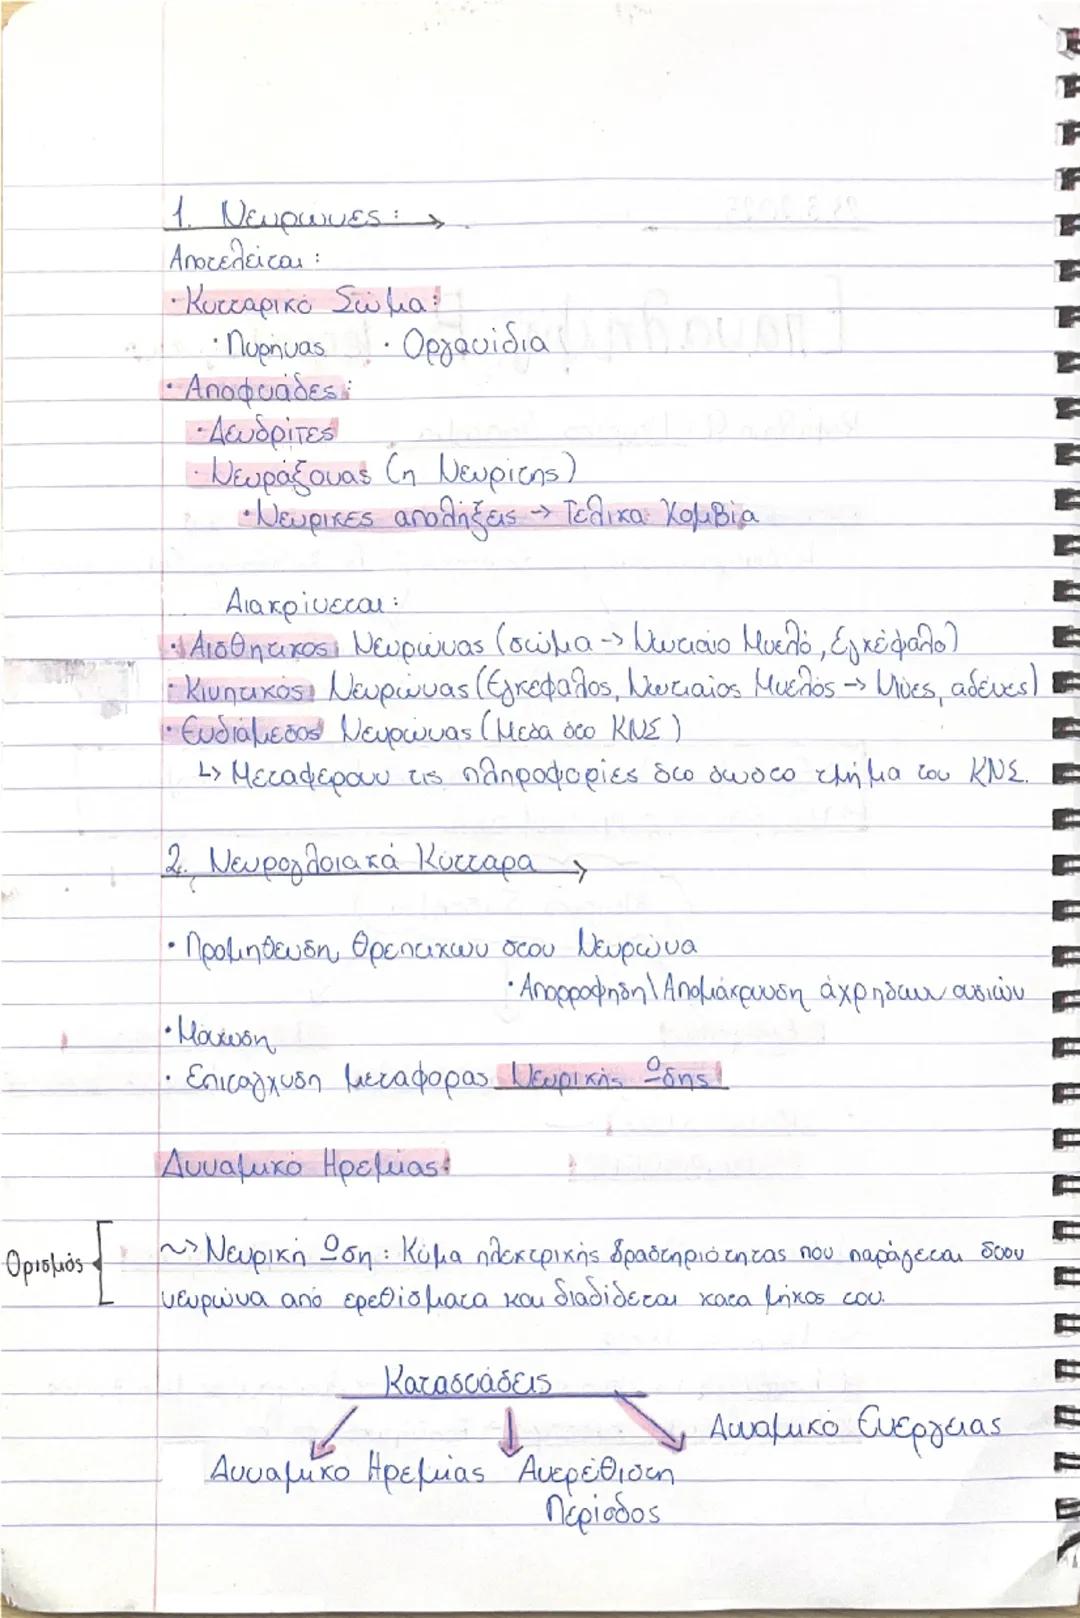 1. Νευρωνες: →
Αποτελείται:
· Κυτταρικό Σώμα:
· Πυρήνας · Οργανίδια
· Αποφυάδες:
· Δενδρίτες
· Νευράξονας (η Νευρίτης)
· Νευρικες απολήξεις → Τελικα Κομβία
Διακρίνεται:
· Αισθητικος Νευρώνας (σώμα → Νωτιαίο Μυελό, Εγκέφαλο)
· Κινητικός Νευρώνας (Εγκεφαλος, Νωτιαίος Μυελός → Μύες, αδένες)
· Ενδιάμεσος Νευρώνας (Μεσα στο ΚΝΣ)
↳ Μεταφερουν τις πληροφορίες στο σωστο τμήμα του ΚΝΣ.
2. Νευρογλοιακά Κύτταρα →
· Προμηθευση θρεπτικων στον Νευρώνα
· Απορροφηση\Απομάκρυνση άχρηστων ουσιών
· Μόνωση
· Επιταγχυση μεταφορας Νευρικής Ώσης
Δυναμικό Ηρεμίας:
Ορισμός
~> Νευρική Ώση: Κύμα ηλεκτρικής δραστηριότητας που παράγεται στον
νευρώνα από ερεθίσματα και διαδίδεται κατα μήκος του.
Καταστάσεις
Δυναμικό Ενέργειας
Δυναμικο Ηρεμίας Ανερέθιστη
Περίοδος